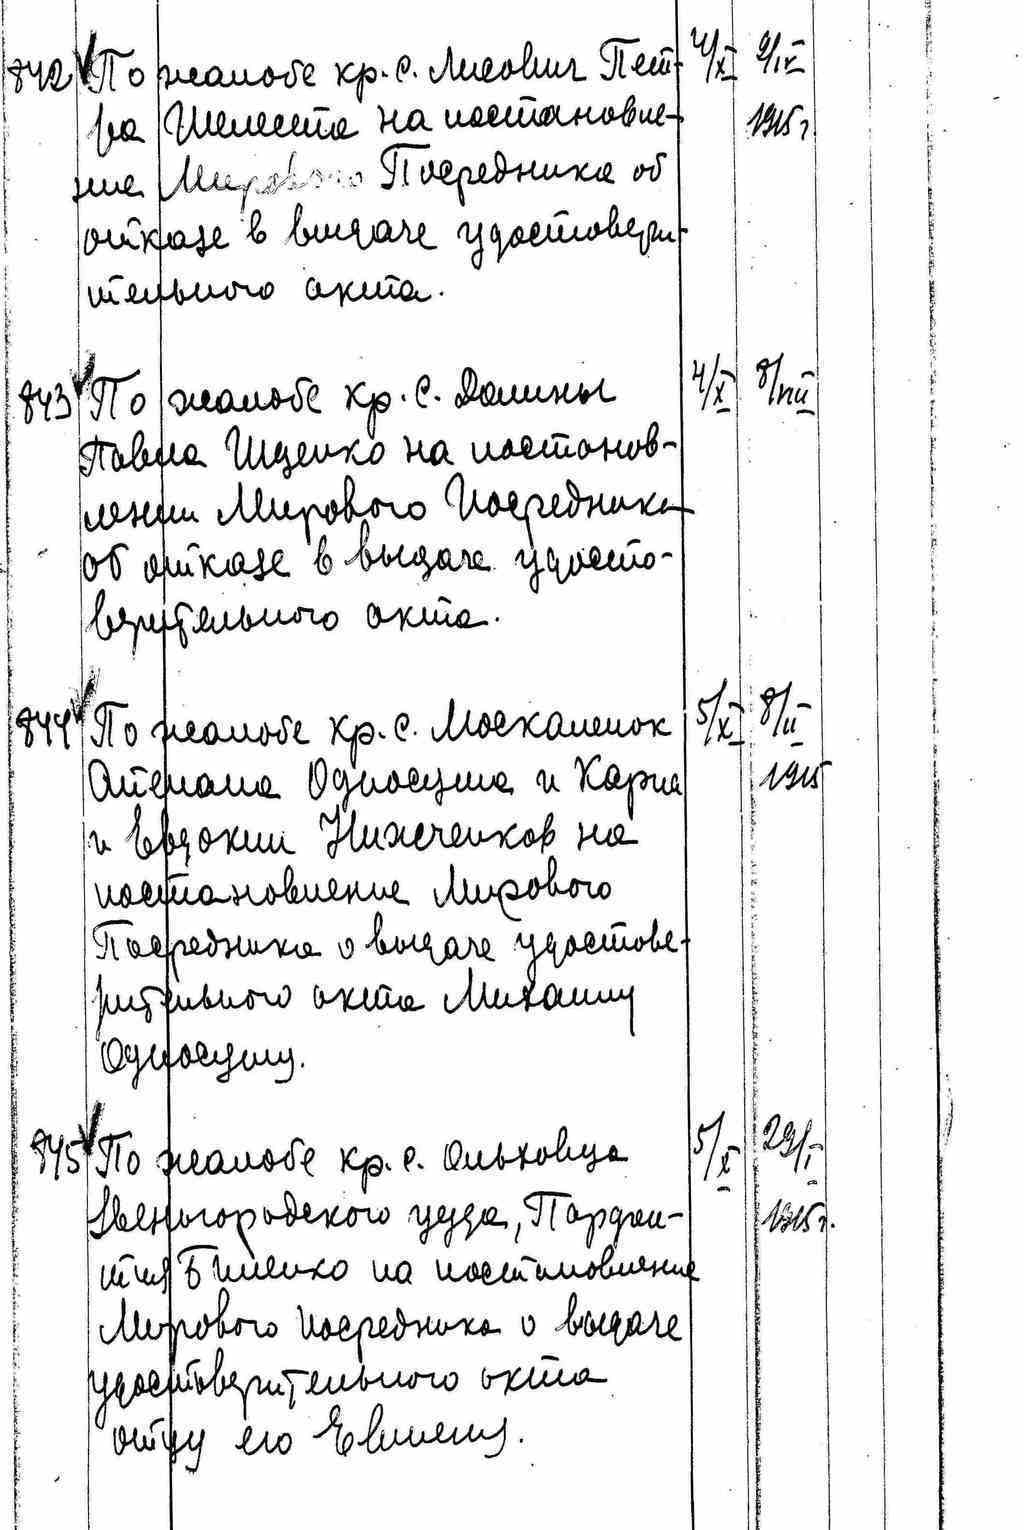 842 По жалобе кр. с. Лисович Пет- 4/X 9/IV
ра Шелеста на постановле- 1915 г.
ние Мирового Посредника об
отказе в выдаче удостовери-
тельного акта.
843 По жалобе кр. с. Долины 4/X 8/XII
Павла Ищенко на постанов-
лении Мирового Посредника
об отказе в выдаче удосто-
верительного акта.
844 По жалобе кр. с. Москаленок 5/X 8/II
Односума и Карпа 1915
и Евдокии Нижченков на
постановление Мирового
Посредника о выдаче удостове-
рительного акта Михаилу
Односуму.
845 По жалобе кр. с. Ольховца 5/X 29/I
Звенигородского уезда, 1915 г.
на постановление
Мирового Посредника о выдаче
удостоверительного акта
отцу его